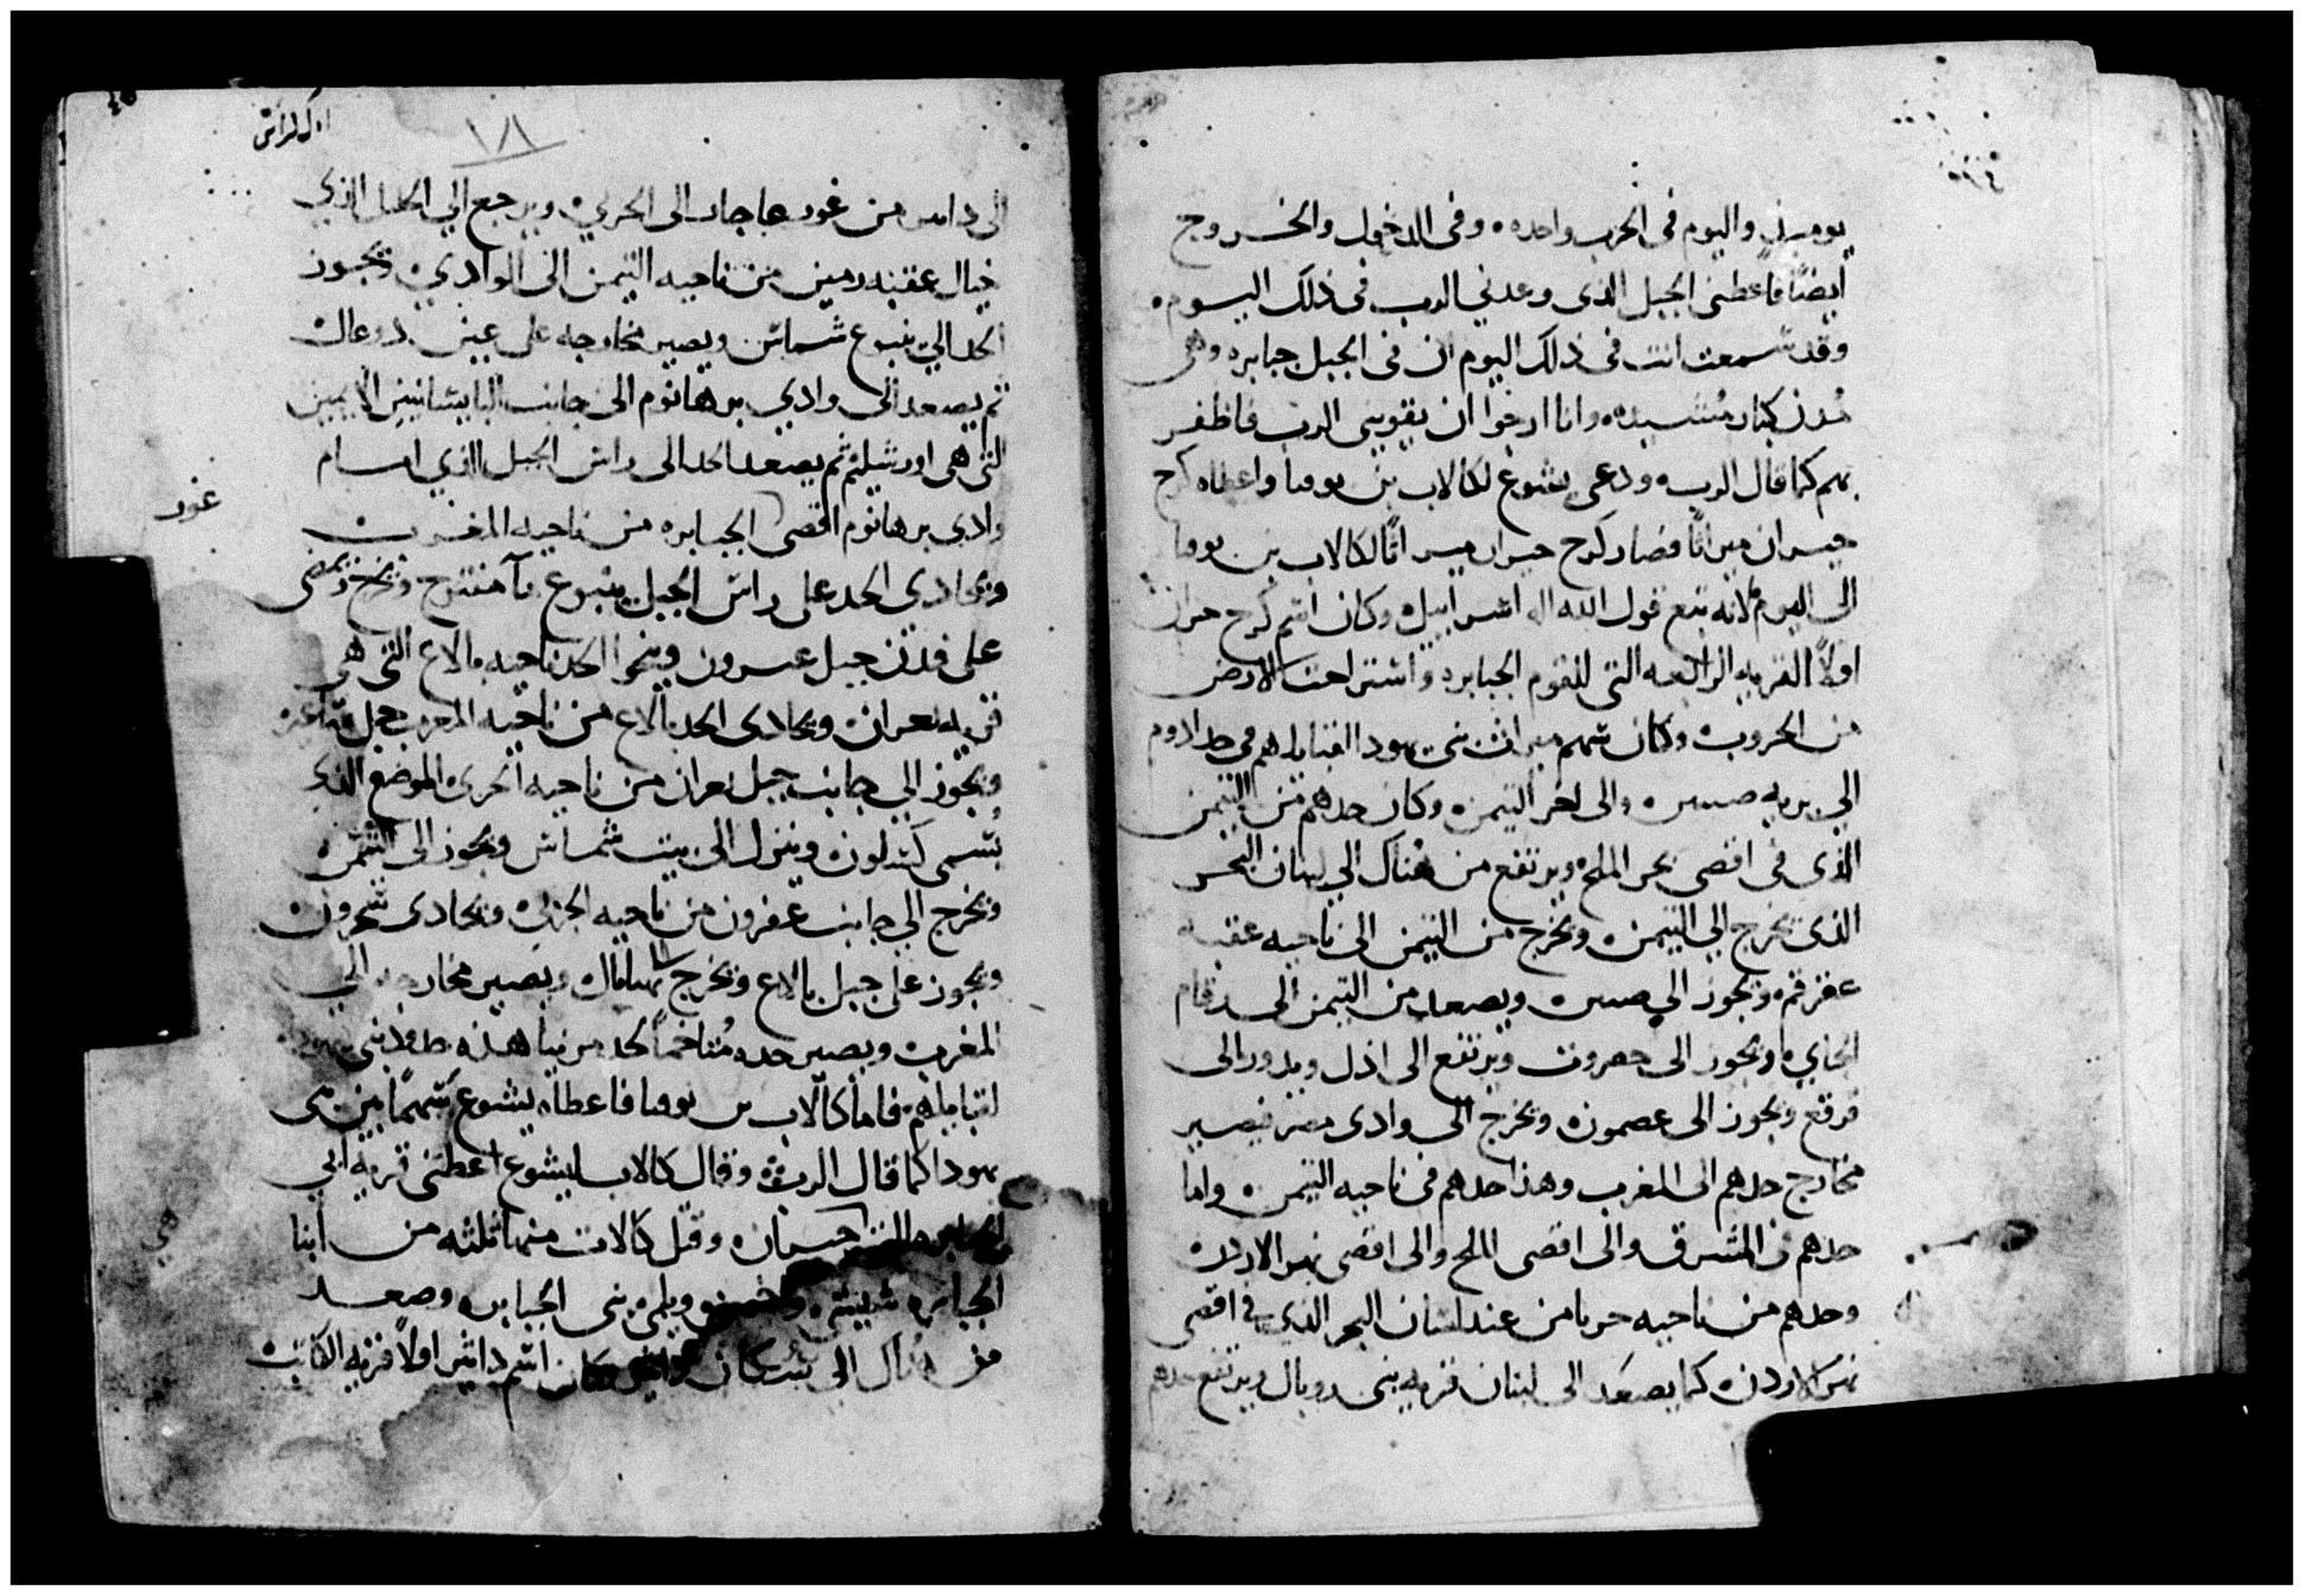 يوميذ واليوم فى الحرب واحده وفى الدخول والخروج
ايضًا فاعطنى الجبل الذى وعدني الرب فى ذلك اليوم
وقد سمعت انت فى ذلك اليوم ان فى الجبل جبابره وهى
مدن كبار مشيده وانا ارجوا ان يقوينى الرب فاظفر
بهم كما قال الرب ودعى يشوع لكالاب بن يوفنا واعطاه كرج
حبران ميراثًا فصار كرج حبران ميراثًا لكالاب بن يوفنا
الى اليوم لانه تبع قول الله اله اسراييل وكان اسم كرج حبران
اولاً القريه الرابعه التى للقوم الجبابره واستراحت الارض
من الحروب وكان سهم ميراث بنى يهودا لقبايلهم فى حد ادوم
الي بريه صين والى اخر التيمن وكان حدهم من التيمن
الذى فى اقصى بحر الملح ويرتفع من هناك الي لسان البحر
الذى يخرج الي التيمن ويخرج من التيمن الى ناحيه عقبه
عقرقم ويجوز الي صين ويصعد من التيمن الى رقام
الجاي ويجوز الى حصرون ويرتفع الى اذل ويدور الى
قرقع ويجوز الى عصمون ويخرج الى وادى مصر فيصير
مخارج حدهم الى المغرب وهذا حدهم فى ناحيه التيمن واما
حدهم فى المشرق والى اقصى الملح والى اقصى نهر الاردن
وحدهم من ناحيه حربيا من عند لسان البحر الذي فى اقصى
نهر الاردن كما يصعد الى لبنان قريه بنى روبال ويرتفع حدهم
١٨١
الى دابير من غور عاجار الى الحربي ويرجع الي الجبل الذي
خيال عقبه دمين من ناحيه التيمن الى الوادي ويجوز
الحد الي ينبوع شماس ويصير مخارجه على عين دوعال
ثم يصعد الى وادي برهانوم الى جانب اليابسانيين الايمن
التى هى اورشليم ثم يصعد الحد الى راس الجبل الذي امام
غور
وادي برهانوم اقصى الجبابره من ناحيه المغرب
ويحادي الحد على راس الجبل ينبوع مآ هنتوح ويخرج ويمضى
على مدن جبل عبرون وينحوا الحد ناحيه بالاع التى هى
قريه نعران ويحادى الحد بالاع من ناحيه المغرب جبل ساعير
ويجوز الي جانب جبل نعران من ناحيه الحربى الموضع الذي
يُسمى كسلون وينزل الى بيت شماس ويجوز الى التيمن
ويخرج الي جانب عفرون من ناحيه الحربى ويحادى شحرون
ويجوز على جبل بالاع ويخرج نهابال ويصير مخارجه الي
المغرب ويصير حده مُتاخمًا لحد مرنيا هذه حدود بنى يهودا
لقبايلهم فاما كالاب بن يوفنا فاعطاه يشوع سهمًا بين بنى
يهودا كما قال الرب وقال كالاب ليشوع اعطنى قريه ابي
الجبابره التى حبران وقتل كالاب منها ثلثه من ابنا
الجبابره شيشى واخيمو ويلمى بنى الجبابره وصعد
من هناك الى سكان دابير وكان اسم دابير اولاً قريه الكاتب